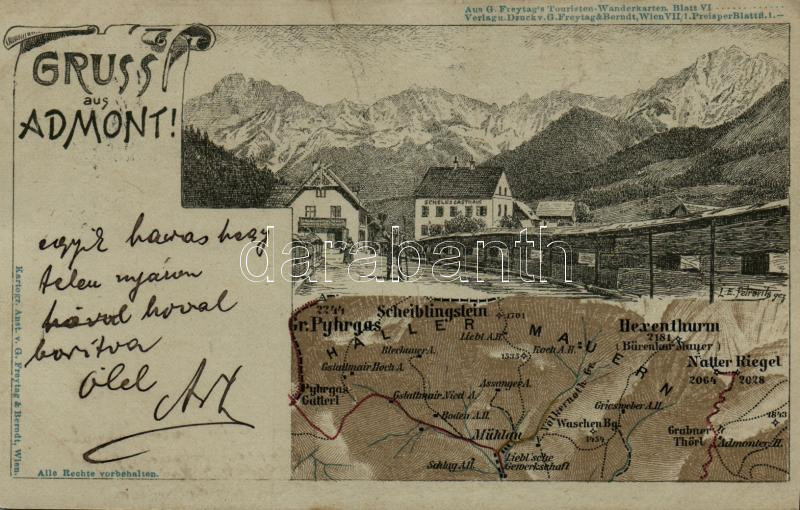 Aus G. Freytag's Touristen-Wanderkarten, Blatt VI
Verlag u. Druck v. G. Freytag & Berndt, Wien VII/1. Preis per Blatt fl. 1.—
GRUSS
aus
ADMONT!
SCHELES GASTHAUS
egyik havas hegy
telen nyáron
hóval
borítva
Ölel
darabanth
L.E. Petrovits gez
2244
Scheiblingstein
1701
Gr. Pyhrgas
HALLER MAUERN
Liebl A.H.
Hexenthurm
2181
(Bärenkar Mauer)
Blechauer A.
1535
Koch A.H.
Natter Riegel
2064
2028
Gstattmair Hoch A.
Pyhrgas
Gatterl
Gstattmair Niedl A.
Assanger A.
Griesweber A.H.
Boden A.H.
Völkernoth Gr.
Waschen Bg.
1454
Grabner
Thörl
1843
Admonter H.
Mühlau
Schlag A.H.
Liebl'sche
Gewerkschaft
Kartogr. Anst. v. G. Freytag & Berndt, Wien.
Alle Rechte vorbehalten.